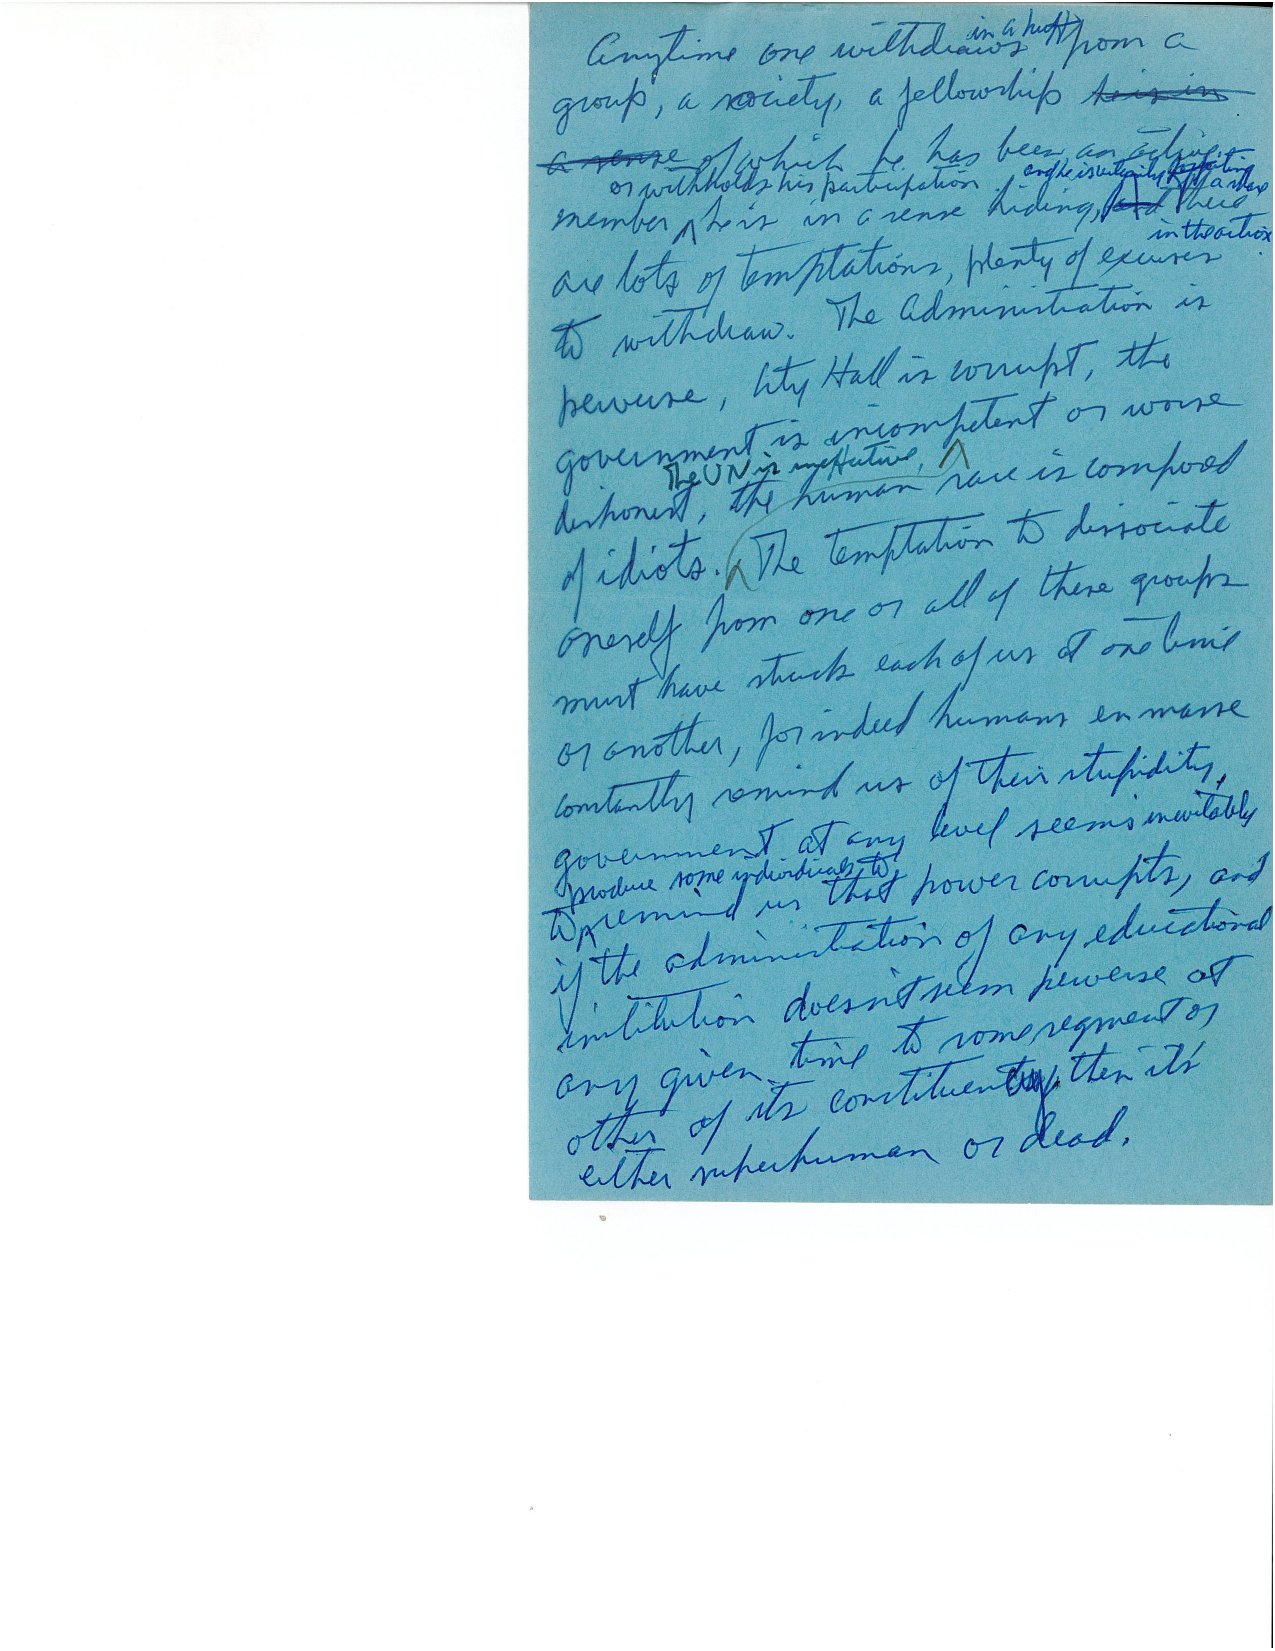 in a huff
Anytime one withdraws from a
group, a society, a fellowship he is in
a sense of which he has been an active
or withholds his participation and he is certainly
member, he is in a sense hiding, and there
in the action
are lots of temptations, plenty of excuses
to withdraw. The Administration is
perverse, City Hall is corrupt, the
government is incompetent or worse
The UN is ineffective,
dishonest, the human race is composed
of idiots. The temptation to dissociate
oneself from one or all of these groups
must have struck each of us at one time
or another, for indeed humans en masse
constantly remind us of their stupidity,
government at any level seems inevitably
produce some individuals to
to remind us that power corrupts, and
if the administration of any educational
institution doesn't seem perverse at
any given time to some segment or
other of its constituency, then it's
either superhuman or dead.